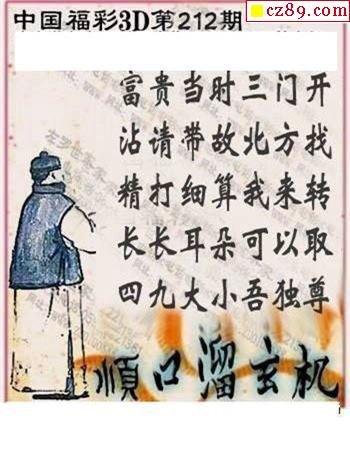 cz89.com
中国福彩3D第212期
富贵当时三门开
沾请带故北方找
精打细算我来转
长长耳朵可以取
四九大小吾独尊
顺口溜玄机